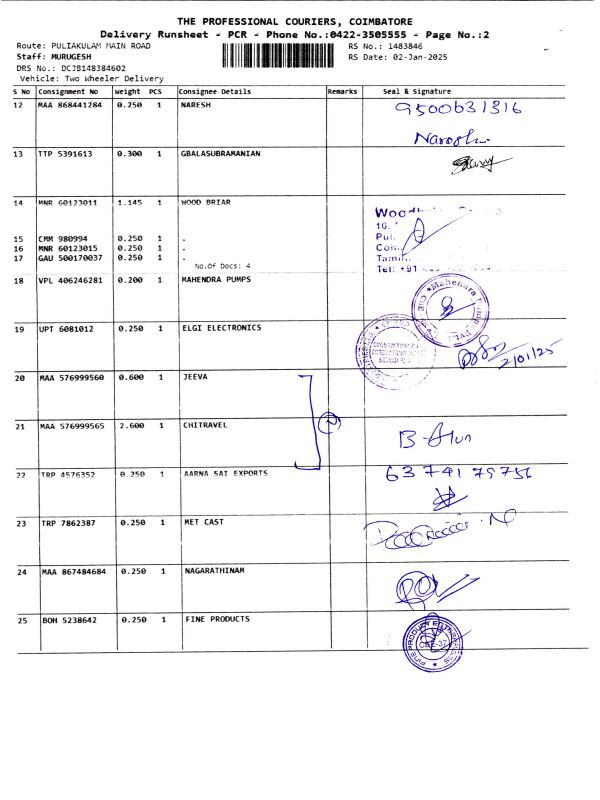 THE PROFESSIONAL COURIERS, COIMBATORE
Delivery Runsheet - PCR - Phone No.:0422-3505555 - Page No.:2
Route: PULIAKULAM MAIN ROAD RS No.: 1483846
Staff: MURUGESH RS Date: 02-Jan-2025
DRS No.: DCJB148384602
Vehicle: Two Wheeler Delivery
S No Consignment No Weight PCS Consignee Details Remarks Seal & Signature
12 MAA 868441284 0.250 1 NARESH 9500631316
Naresh
13 TTP 5391613 0.300 1 GBALASUBRAMANIAN
14 MNR 60123011 1.145 1 WOOD BRIAR
15 CMM 980994 0.250 1 .
16 MNR 60123015 0.250 1 .
17 GAU 500170037 0.250 1 .
No.Of Docs: 4
Tel: +91
18 VPL 406246281 0.200 1 MAHENDRA PUMPS
Mahendra Pumps
19 UPT 6081012 0.250 1 ELGI ELECTRONICS
2/01/25
20 MAA 576999560 0.600 1 JEEVA
21 MAA 576999565 2.600 1 CHITRAVEL
2
B Arun
22 TRP 4576352 0.250 1 AARNA SAI EXPORTS 63741 79756
23 TRP 7862387 0.250 1 MET CAST
24 MAA 867484684 0.250 1 NAGARATHINAM
25 BOH 5238642 0.250 1 FINE PRODUCTS
FINE PRODUCT ENTERPRISES
CBE-37